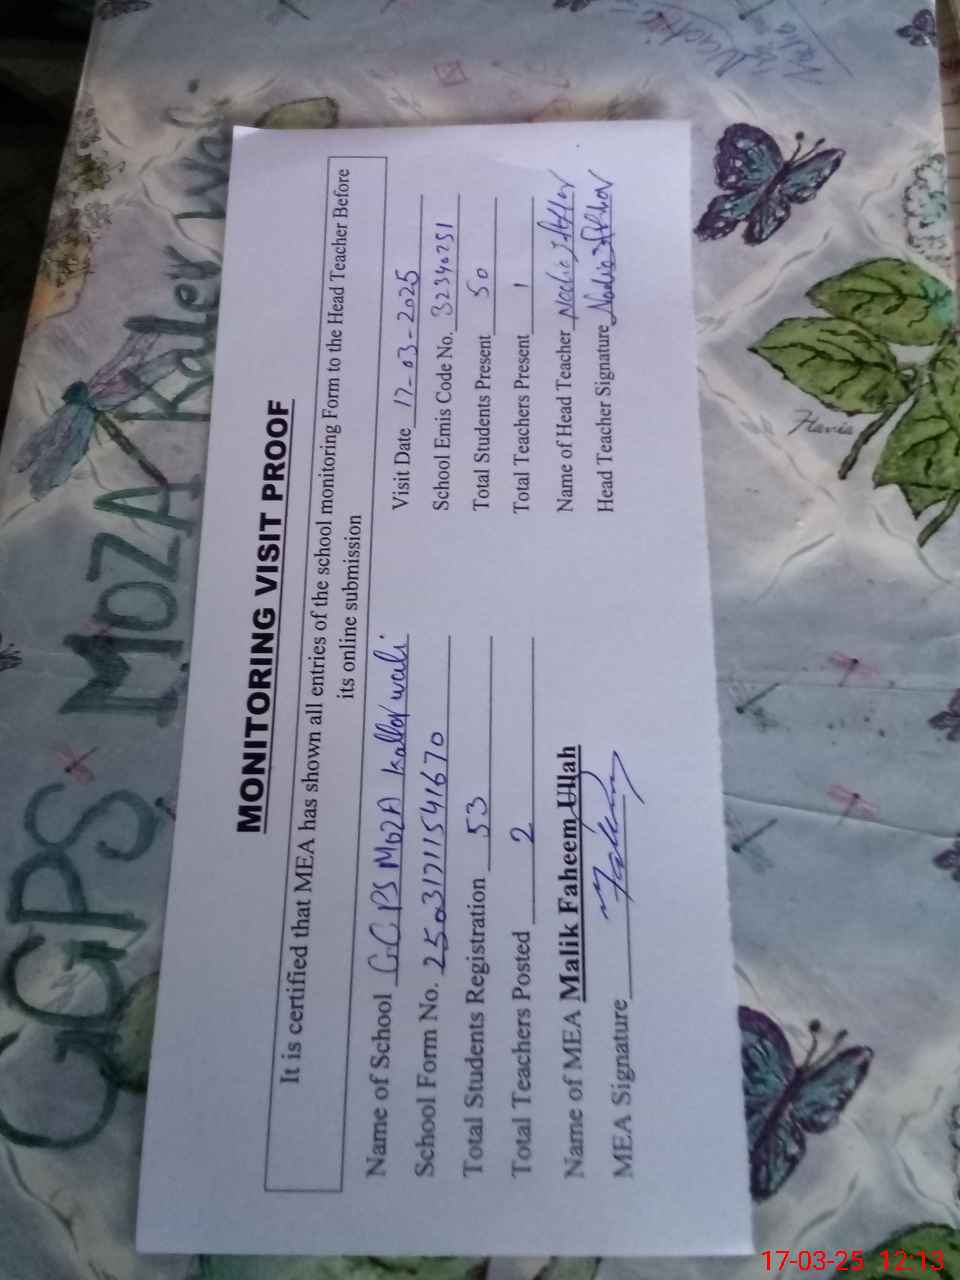 GGPS MOZA Kaler Wali.
MONITORING VISIT PROOF
It is certified that MEA has shown all entries of the school monitoring Form to the Head Teacher Before
its online submission
Name of School G.G.PS MOZA Kallar wali
Visit Date 17-03-2025
School Form No. 25031711541670
School Emis Code No. 32340251
Total Students Registration 53
Total Students Present 50
Total Teachers Posted 2
Total Teachers Present 1
Name of MEA Malik Faheem Ullah
Name of Head Teacher Nadia
MEA Signature Faheem
Head Teacher Signature Nadia
Flavia
17-03-25 12:13